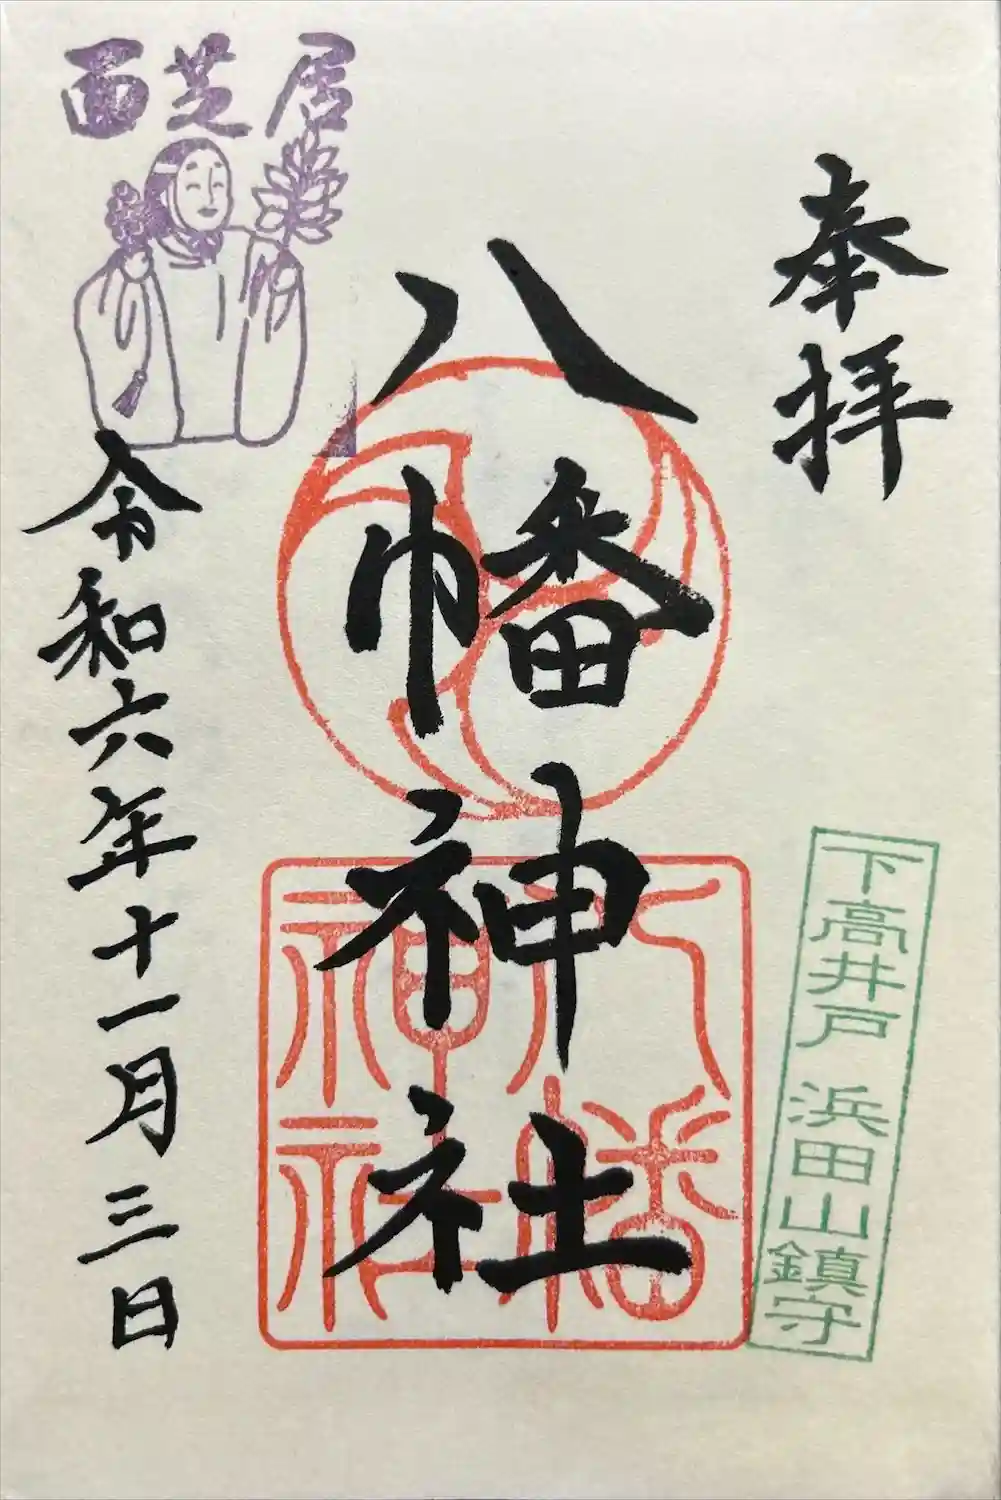 奉拝
下高井戸 浜田山鎮守
八幡神社
八幡
神社
面芝居
令和六年十一月三日